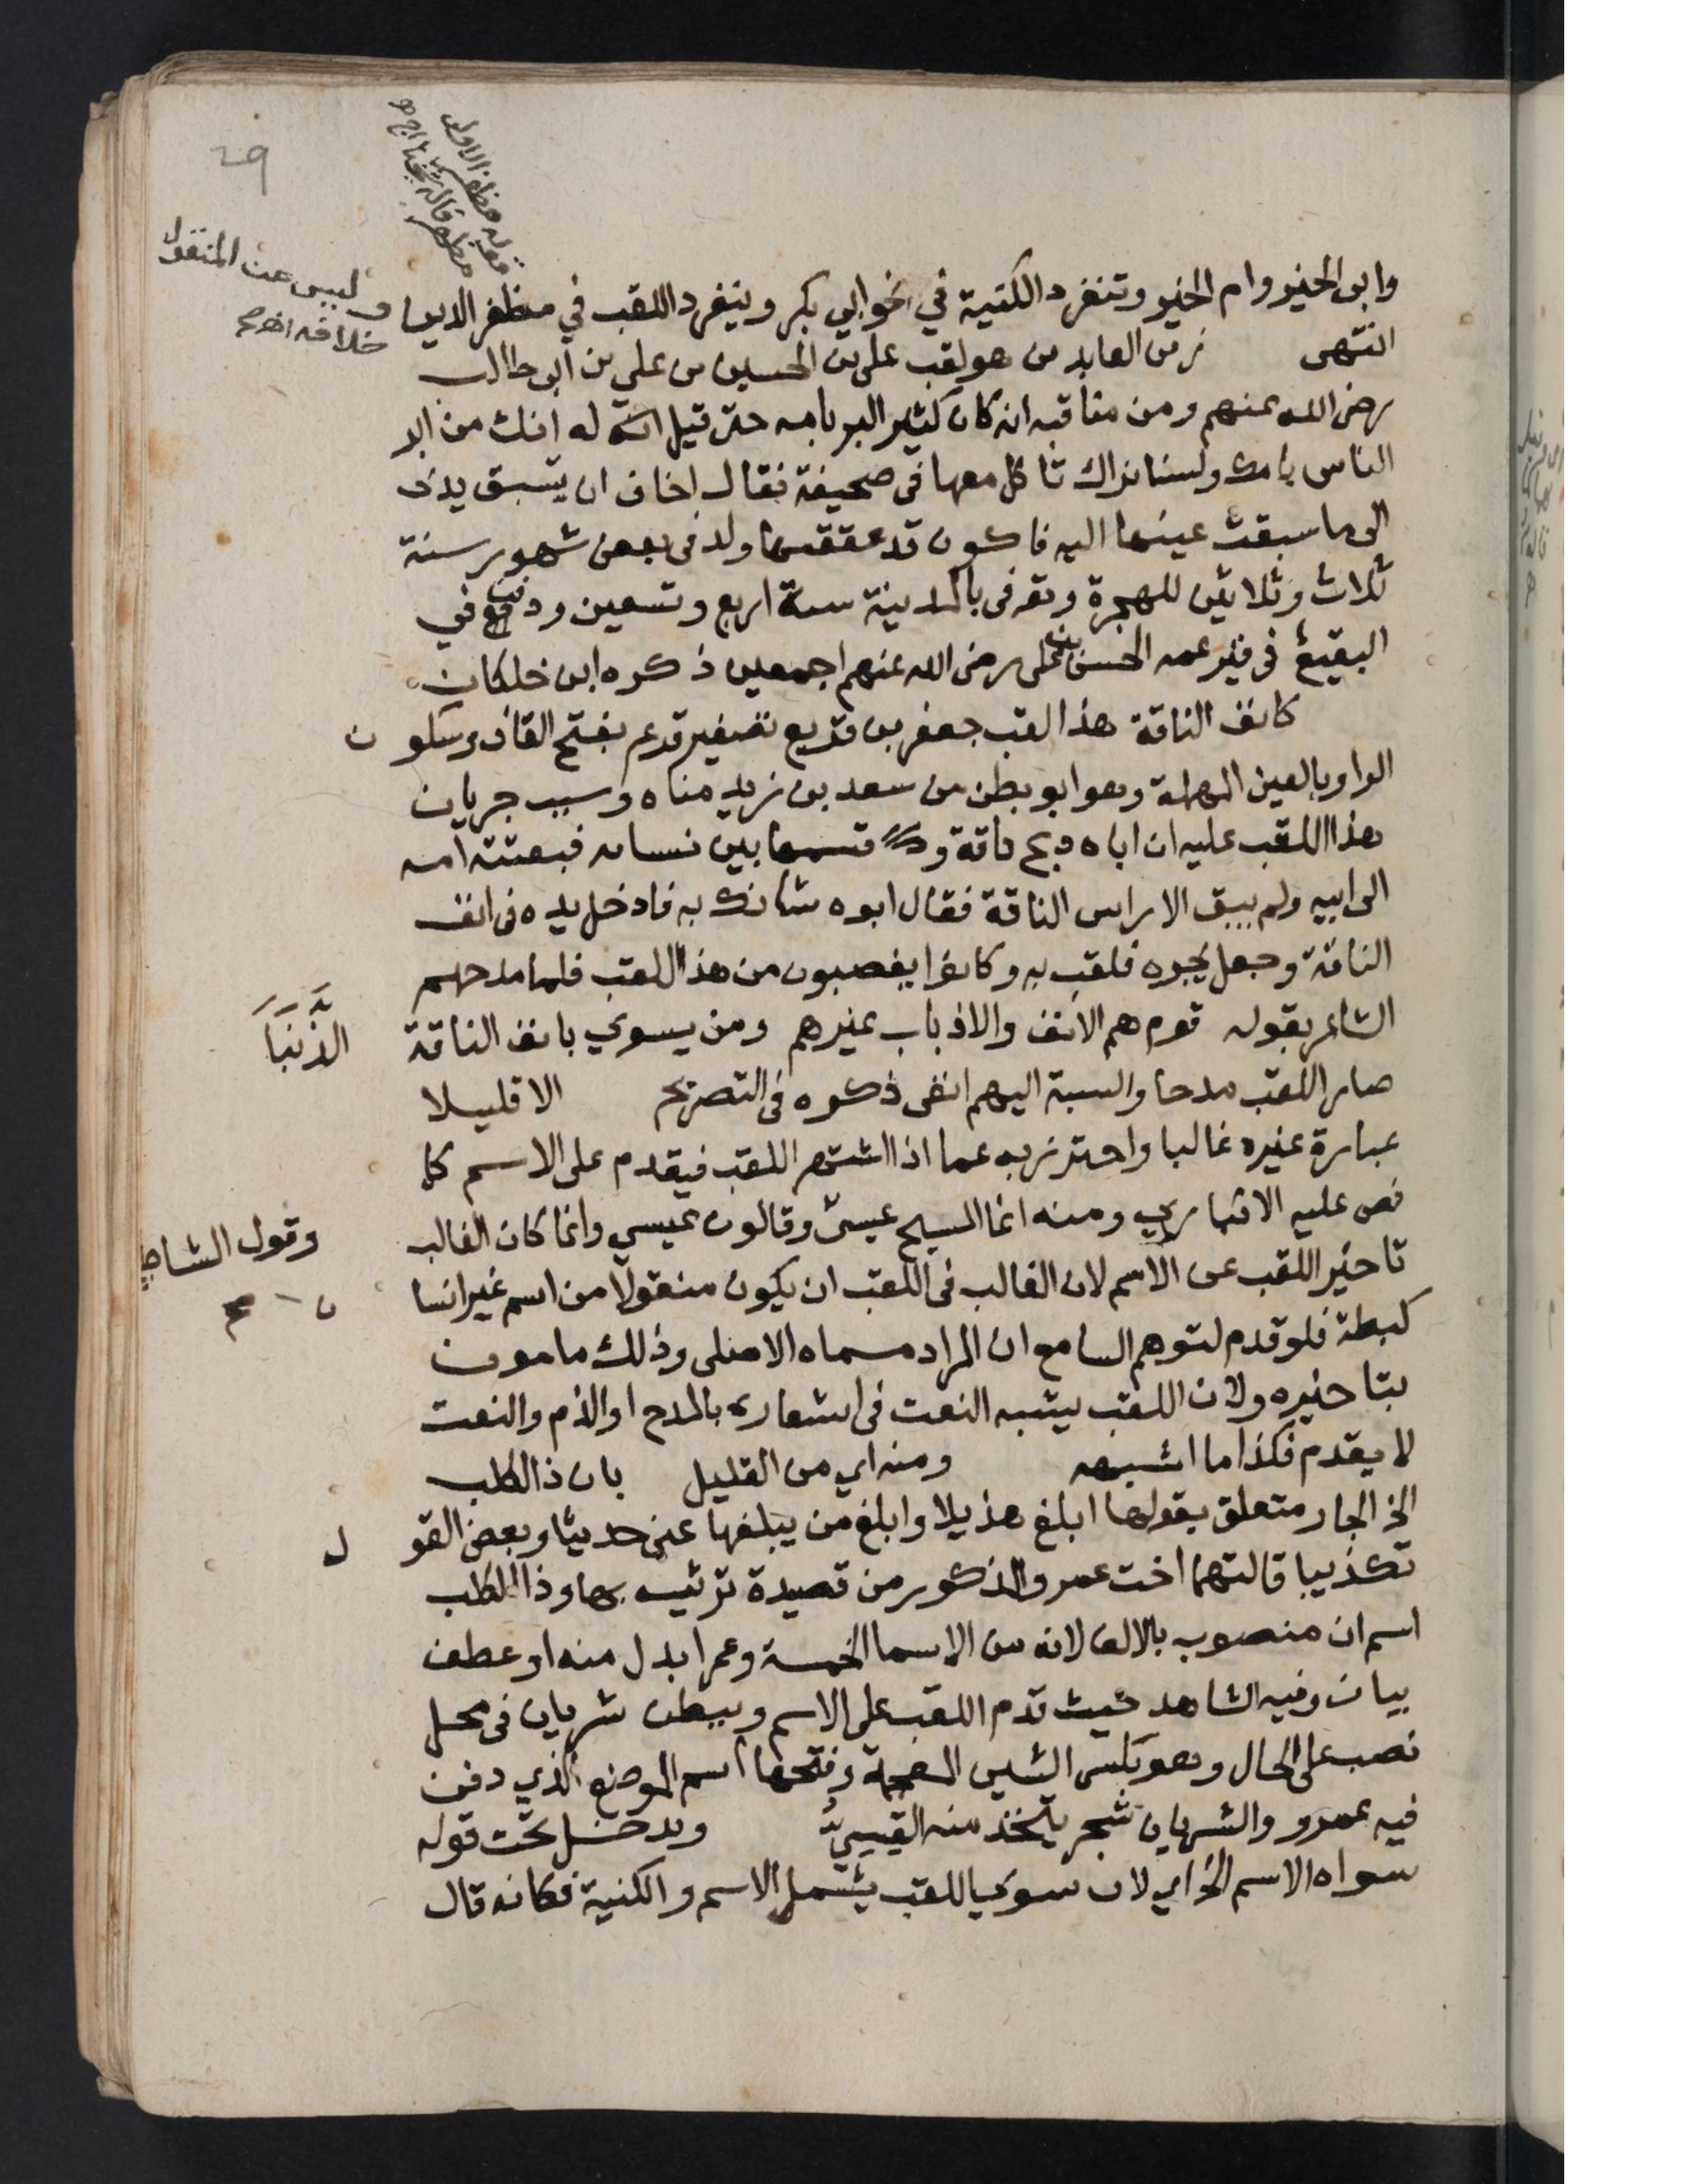 29
وابن الخير وام الخير وتنفرد الكنية في نحو ابي بكر وينفرد اللقب في مظفر الدين
وليس عن المنقول
خلافه
انتهى زين العابدين هو لقب علي بن الحسين بن علي بن ابي طالب
رضي الله عنهم ومن مناقبه انه كان كثير البر بامه حتى قيل له انك من ابر
الناس بامك ولسنا نراك تاكل معها في صحيفة فقال اخاف ان يسبق يدي
الى ما سبقت عينها اليه فاكون قد عققتها ولد في بعض شهور سنة
ثلاث وثلاثين للهجرة وتوفى بالمدينة سنة اربع وتسعين ودفن في
البقيع في قبر عمه الحسن بن علي رضي الله عنهم اجمعين ذكره ابن خلكان
كانف الناقة هذا لقب جعفر بن قريع تصغير قرع بفتح القاف وسكون
الواو بالعين المهملة وهو ابو بطن من سعد بن زيد مناه وسبب جريان
هذا اللقب عليه ان اباه ذبح ناقة وقسمها بين نسائه فبعثته امه
الى ابيه ولم يبق الا راس الناقة فقال ابوه شانك به فادخل يده في انف
الناقة وجعل يجره فلقب به وكانوا يغضبون من هذا اللقب فلما مدحهم
الشاعر بقوله قوم هم الانف والاذباب غيرهم ومن يسوي بانف الناقة الذَّنَبَا
صار اللقب مدحا والنسبة اليهم انفى ذكره في التصريح الا قليلا
عبارة غيره غالبا واحترز به عما اذا اشتهر اللقب فيقدم على الاسم كما
نص عليه الانباري ومنه انما المسيح عيسى وقالون عيسى وانما كان الغالب
وقول الشاطبي
تاخير اللقب عن الاسم لان الغالب في اللقب ان يكون منقولا من اسم غير انسان
كبطة فلو قدم لتوهم السامع ان المراد مسماه الاصلى وذلك مامون
بتاخيره ولان اللقب يشبه النعت في اشعاره بالمدح او الذم والنعت
لا يقدم فكذا ما اشبهه ومنه اي من القليل بان ذا الكلب
الخ الجار متعلق بقولها ابلغ هذيلا وابلغ من يبلغها عني حديثا وبعض القول
تكذيبا قالتهما اخت عمرو المذكور من قصيدة ترثيه بها وذا الكلب
اسم ان منصوب بالالف لانه من الاسما الخمسة وعمرا بدل منه او عطف
بيان وفيه الشاهد حيث قدم اللقب على الاسم وببطن شريان في محل
نصب على الحال وهو بكسر الشين المعجمة وفتحها اسم الموضع الذي دفن
فيه عمرو والشريان شجر يتخذ منه القسيّ ويدخل تحت قوله
سواه الاسم الخ اي لان سوى اللقب يشمل الاسم والكنية فكانه قال